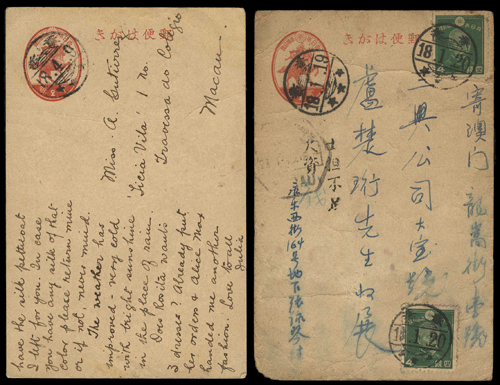 郵便はがき
Miss A. Gutierrez
"Licia Vila" 1 No.
Travessa do Colegio
Macau.
have the silk petticoat
I left for you. In case
you have any silk of that
color please return mine
or if not, never mind.
The weather has
improved, very cold
with bright sunshine
in the place of rain.
Does Rosita want
3 dresses? Already put
her orders & Alice Max
handed me another
fashion. Love to all
Julia
郵便はがき
18.1.19
20
寄澳門 龍嵩街
興公司大宝號
盧楚珩先生收展
街164號地下
18.1.20